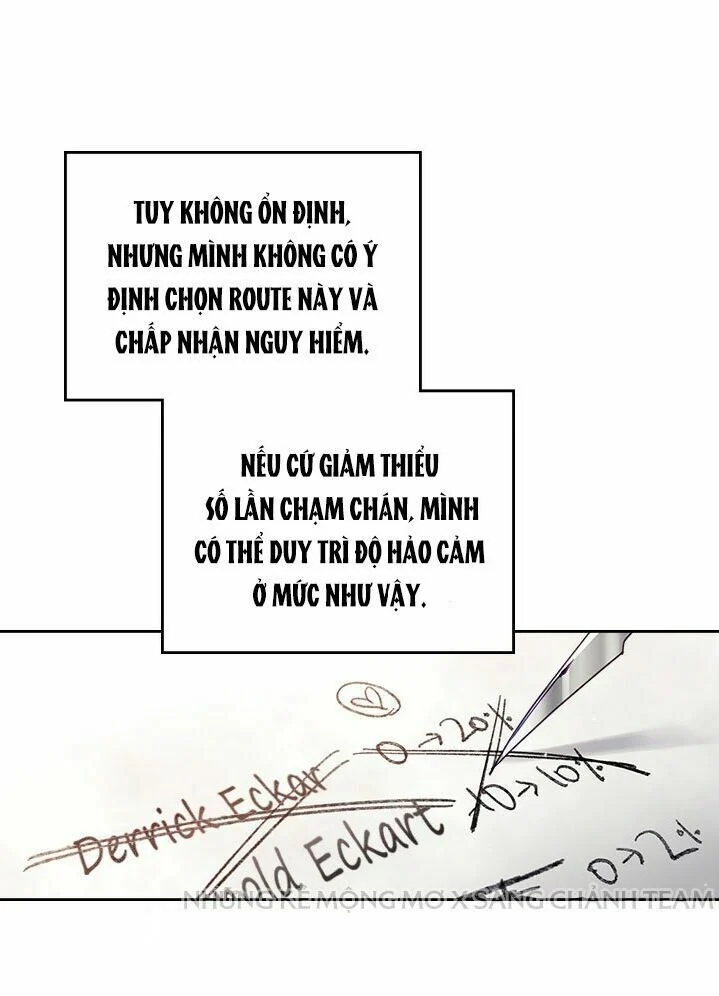 TUY KHÔNG ỔN ĐỊNH,
NHƯNG MÌNH KHÔNG CÓ Ý
ĐỊNH CHỌN ROUTE NÀY VÀ
CHẤP NHẬN NGUY HIỂM.
NẾU CỨ GIẢM THIỂU
SỐ LẦN CHẠM CHÁN, MÌNH
CÓ THỂ DUY TRÌ ĐỘ HẢO CẢM
Ở MỨC NHƯ VẬY.
Derrick Eckar 0 → 20%
old Eckart 10 → 10%
0 → 2%
NHỮNG KẺ MỘNG MƠ X SANG CHẢNH TEAM